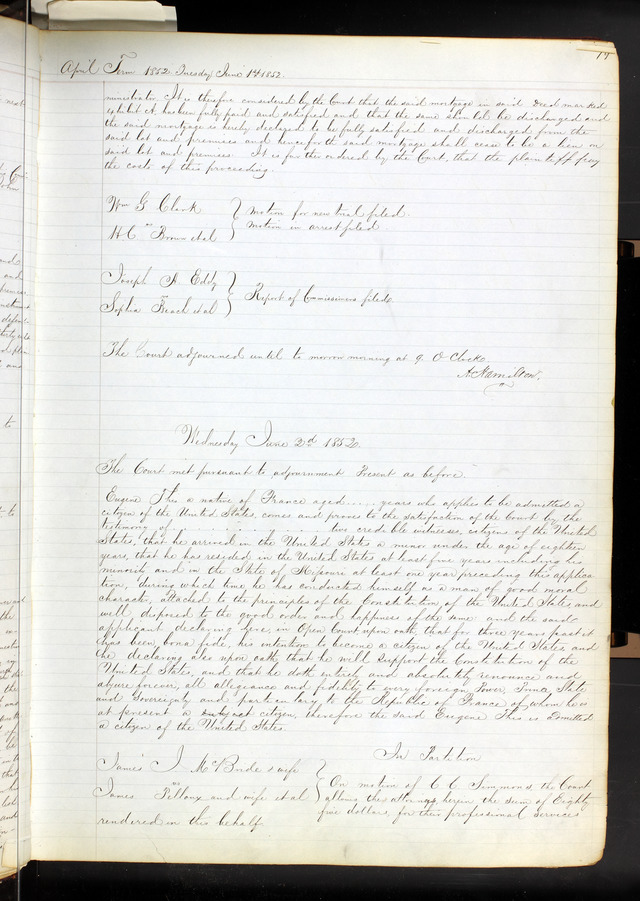 17
April Term 1852 Tuesday June 1st 1852
ministrator. It is therefore considered by the Court that the said mortgage in said Deed marked
exhibit A. has been fully paid and satisfied and that the same should be discharged and
the said mortgage is hereby declared to be fully satisfied and discharged from the
said lot and premises and henceforth the said mortgage shall cease to be a lien on
said lot and premises. It is further ordered by the Court, that the plaintiff pay
the costs of this proceeding.
Wm G. Clark } Motion for new trial filed.
vs
H C Brown et al } Motion in arrest filed
Joseph A Eddy } Report of Commissioners filed
vs
Sophia et al
The Court adjourned until to morrow morning at 9. O Clock.
A Hamilton.
Wednesday June 2nd 1852.
The Court met pursuant to adjournment Present as before.
Eugene This a native of France aged ..... years who applies to be admitted a
citizen of the United States, comes and proves to the satisfaction of the Court by the
testimony of . . . . . . . . two credible witnesses, citizens of the United
States, that he arrived in the United States a minor under the age of eighteen
years, that he has resided in the United States at least five years including his
minority and in the State of Missouri at least one year preceding this applica
tion, during which time he has conducted himself as a man of good moral
character, attached to the principles of the Constitution of the United States, and
well disposed to the good order and happiness of the same and the said
applicant declaring here, in Open Court upon oath, that for three years past it
has been bona fide, his intention to become a citizen of the United States and
he declaring also upon oath, that he will support the Constitution of the
United States, and that he doth entirely and absolutely renounce and
abjure forever, all allegiance and fidelity to every foreign Power, Prince State
and Sovereignty and particulary to the Republic of France of whom he is
at present a citizen, therefore the said Eugene This is admitted
a citizen of the United States.
In Partition
James J McBride & wife } On motion of C C Simmons, the Court
vs
James and wife et al } allows the attorneys herein the sum of Eighty
five dollars, for their professional services
rendered in this behalf.